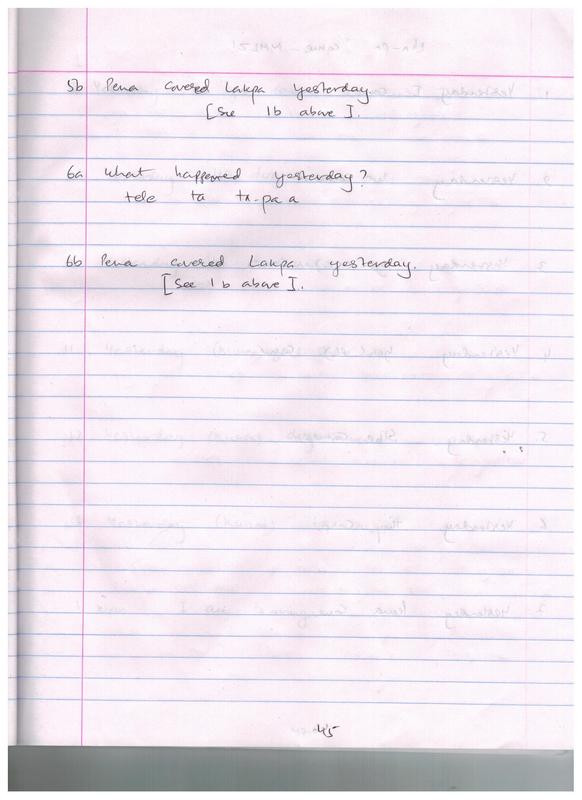 5b Pema covered Lakpa yesterday.
[See 1b above].
6a What happened yesterday?
tele ta tʌ-pa a
6b Pema covered Lakpa yesterday.
[See 1b above].
45